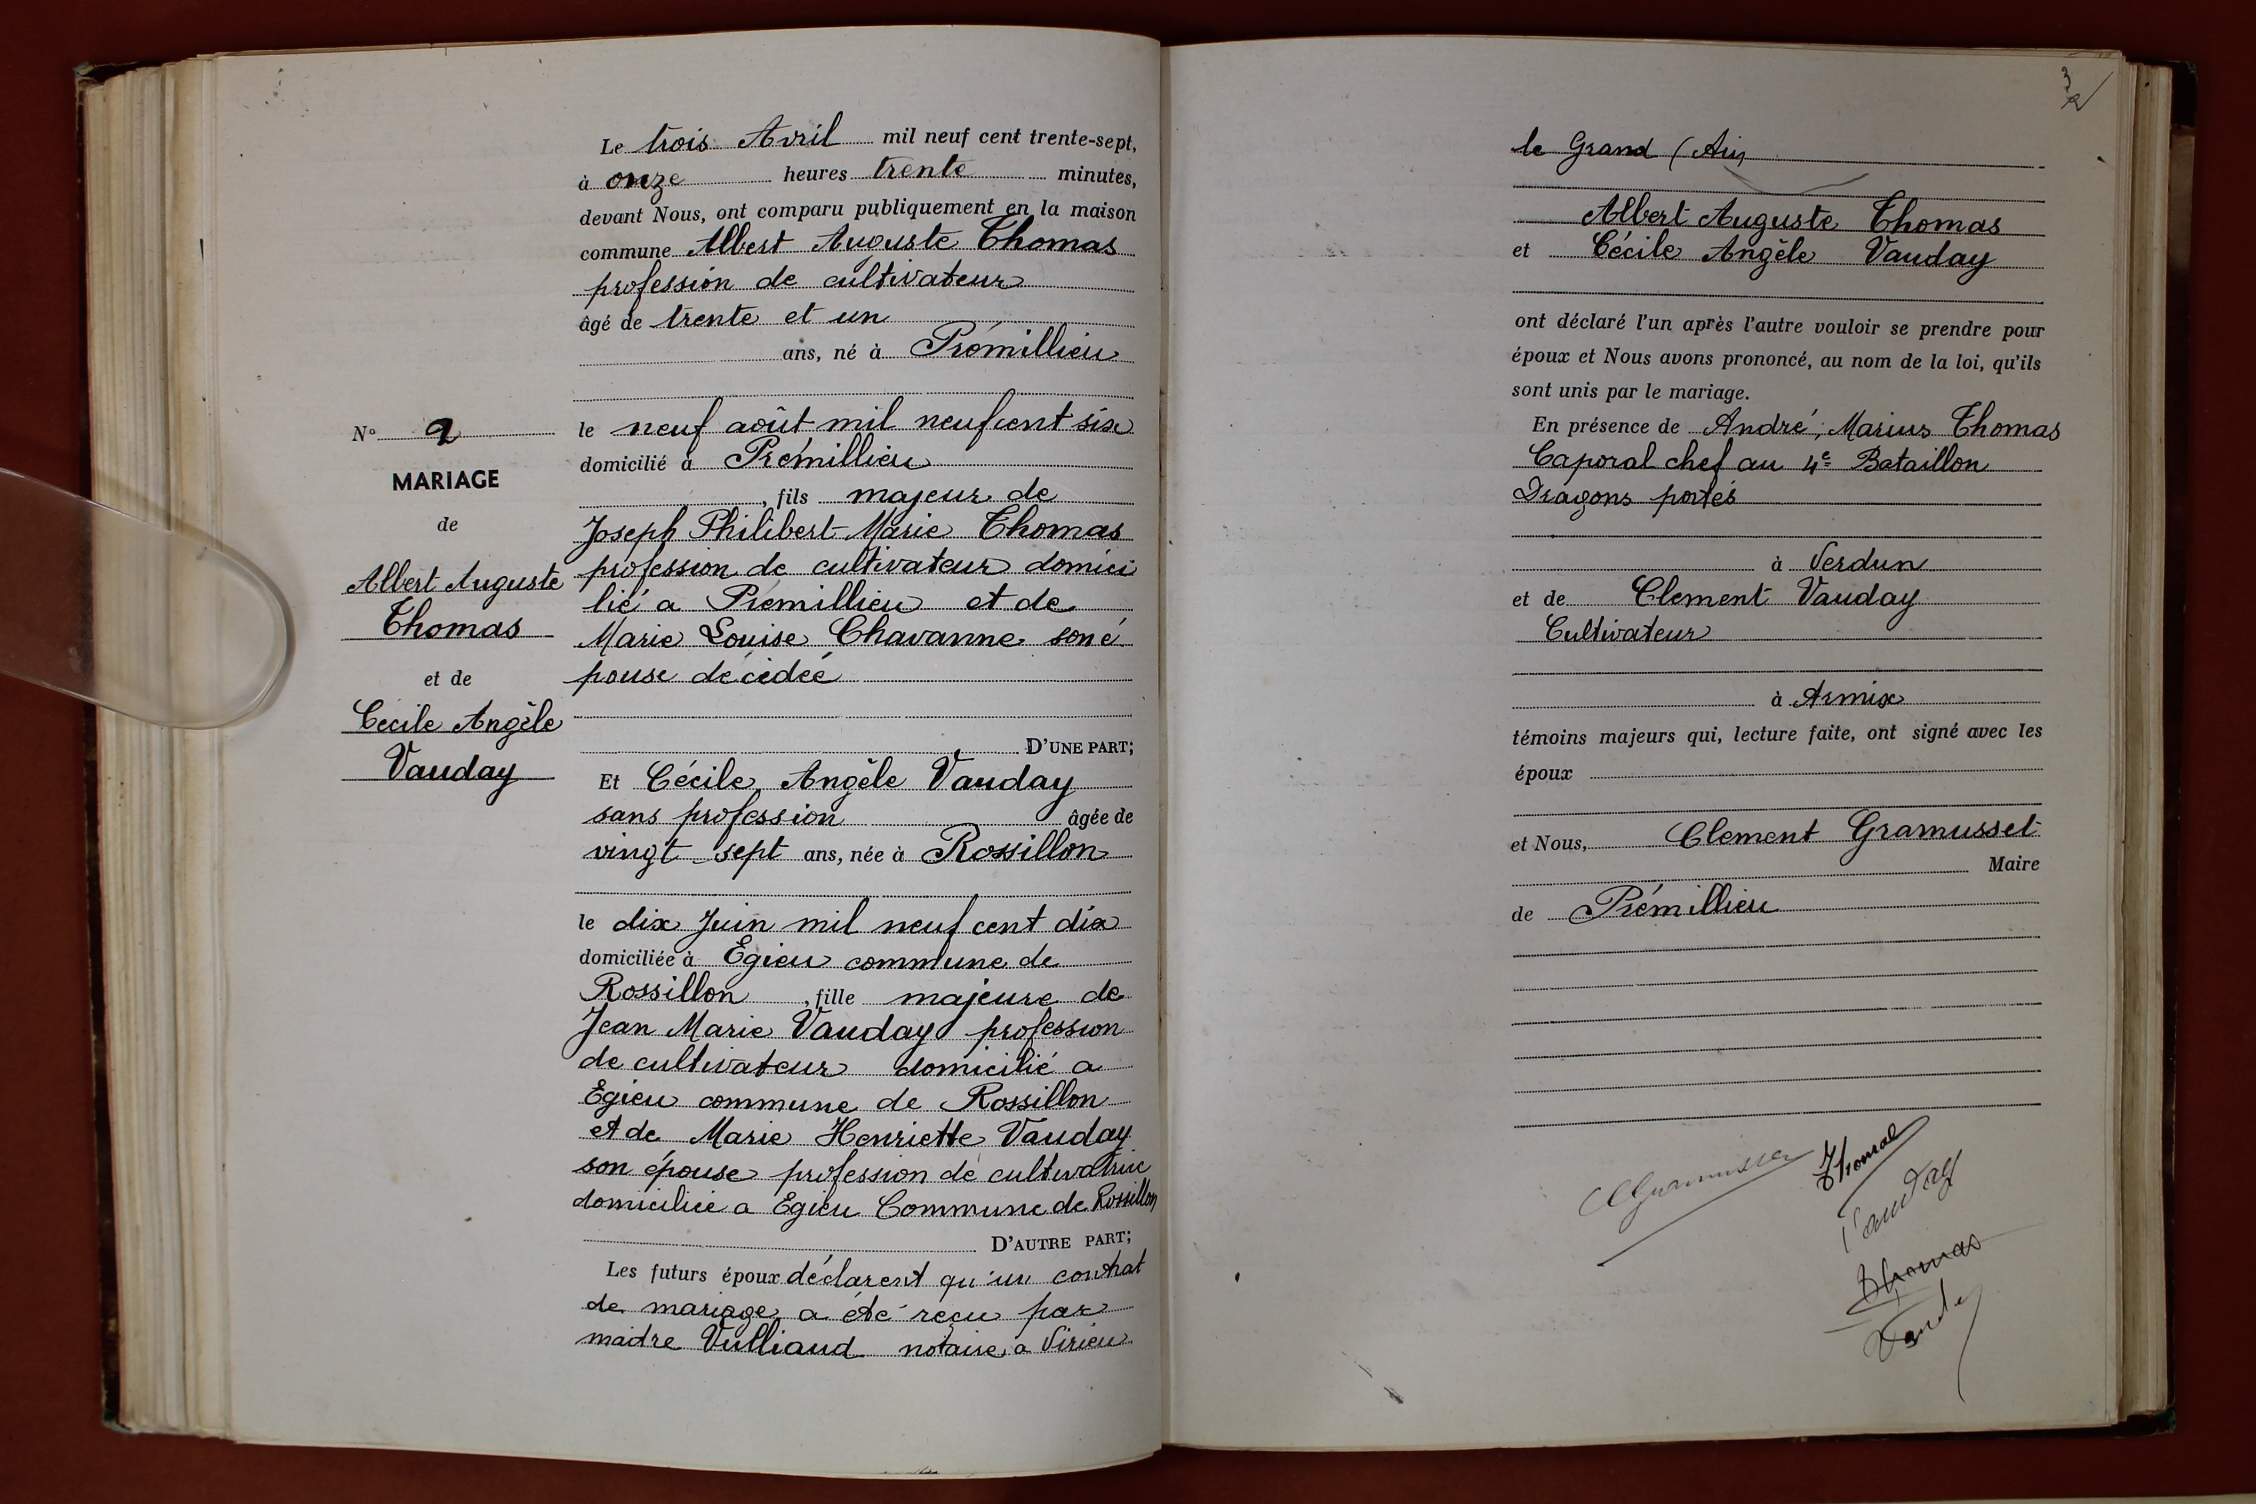 Le trois Avril mil neuf cent trente-sept,
à onze heures trente minutes,
devant Nous, ont comparu publiquement en la maison
commune Albert Auguste Thomas
profession de cultivateur
âgé de trente et un
ans, né à Prémillieu
le neuf août mil neuf cent six
domicilié à Prémillieu
, fils majeur de
Joseph Philibert Marie Thomas
profession de cultivateur domici
lié a Prémillieu et de
Marie Louise Chavanne son é
pouse décédée
D'UNE PART;
N° 2
MARIAGE
de
Albert Auguste
Thomas
et de
Cécile Angèle
Vauday
Et Cécile Angèle Vauday
sans profession âgée de
vingt sept ans, née à Rossillon
le dix Juin mil neuf cent dix
domiciliée à Egieu commune de
Rossillon , fille majeure de
Jean Marie Vauday profession
de cultivateur domicilié a
Egieu commune de Rossillon
et de Marie Henriette Vauday
son épouse profession de cultivatrice
domiciliée a Egieu Commune de Rossillon
D'AUTRE PART;
Les futurs époux déclarent qu'un contrat
de mariage a été reçu par
maitre Vulliaud notaire a Virieu
3
2
le Grand (Ain
Albert Auguste Thomas
et Cécile Angèle Vauday
ont déclaré l'un après l'autre vouloir se prendre pour
époux et Nous avons prononcé, au nom de la loi, qu'ils
sont unis par le mariage.
En présence de André, Marius Thomas
Caporal chef au 4e Bataillon
Dragons portés
à Verdun
et de Clement Vauday
Cultivateur
à Armix
témoins majeurs qui, lecture faite, ont signé avec les
époux
et Nous, Clement Gramusset
Maire
de Prémillieu
CGramusset
Thomas
Vauday
Thomas
Vauday